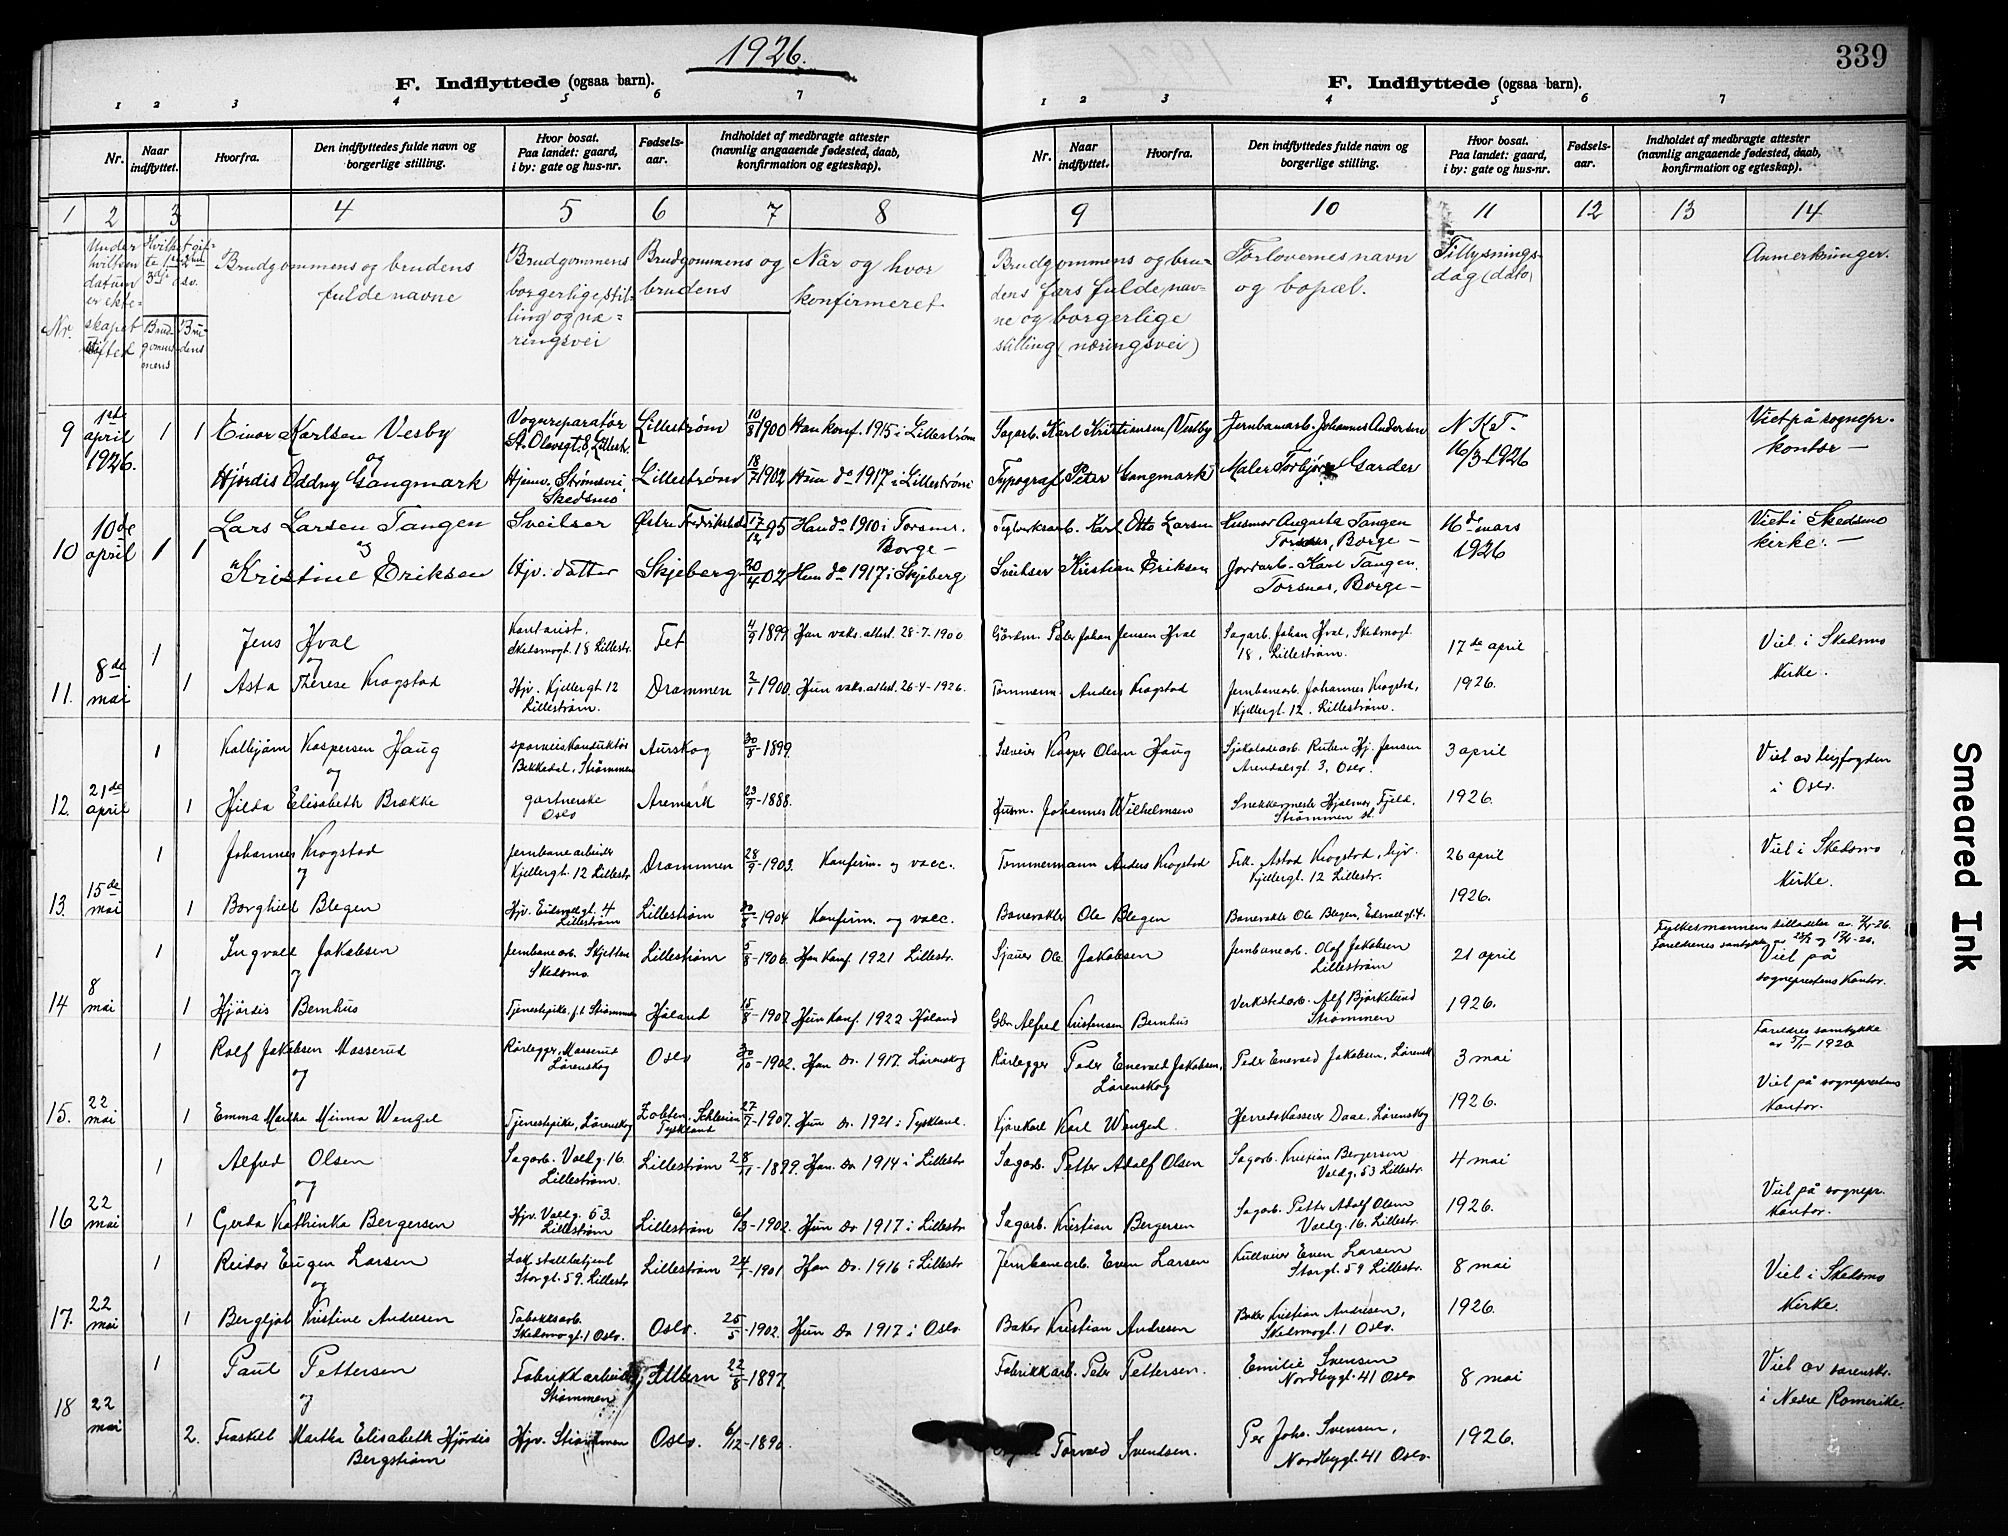 1926.
339
F. Indflyttede (ogsaa barn).
1 2 3 4 5 6 7
Nr.
Naar indflyttet.
Hvorfra.
Den indflyttedes fulde navn og borgerlige stilling.
Hvor bosat. Paa landet: gaard, i by: gate og hus-nr.
Fødsels-aar.
Indholdet af medbragte attester (navnlig angaaende fødested, daab, konfirmation og egteskap).
F. Indflyttede (ogsaa barn).
1 2 3 4 5 6 7
Nr.
Naar indflyttet.
Hvorfra.
Den indflyttedes fulde navn og borgerlige stilling.
Hvor bosat. Paa landet: gaard, i by: gate og hus-nr.
Fødsels-aar.
Indholdet af medbragte attester (navnlig angaaende fødested, daab, konfirmation og egteskap).
1 2 3 4 5 6 7 8 9 10 11 12 13 14
Nr.
Under hvilken datum er ekteskapet stiftet
Brudgommens
Brudens
Brudgommens og brudens fulde navne
Brudgommens borgerlige stilling og næringsvei
Brudgommens og brudens
Når og hvor konfirmeret.
Brudgommens og brudens fars fulde navne og borgerlige stilling (næringsvei)
Forlovernes navn og bopæl.
Tillysningsdag (dato)
Anmerkninger.
9 1ste april 1926. 1 1 Einar Karlsen Vesby Vognreparatør St. Olavsgt. 8, Lillestr. Lillestrøm 10/8 1900 Han konf. 1915 i Lillestrøm Sagarb. Karl Kristiansen Vesby Jernbanarb. Johannes Andersen 16/3-1926 Viet på sognepr. kontor –
og
Hjørdis Oddny Gangmark Hjemv. Strømsvei, Skedsmo Lillestrøm 18/7 1902 Hun do 1917 i Lillestrøm Typograf Peter Gangmark Maler Torbjørn Garder
10 10de april 1 1 Lars Larsen Tangen Sveitser Østre Fredrikstad 17/12 95 Han do 1910 i Torsnes. Borge – Teglverksarb. Karl Otto Larsen Husmor Augusta Tangen Torsnes, Borge – 16de mars 1926 Viet i Skedsmo kirke. –
og
Kristine Eriksen Hjv. datter Skjeberg 20/4 02 Hun do 1917 i Skjeberg Sveitser Kristian Eriksen Jordarb. Karl Tangen. Torsnes, Borge –
11. 8de mai 1 Jens Hval Kontorist. Skedsmogt. 18 Lillestr. Fet 4/9 1899 Han vaks. attest. 28-7-1900 Gårdm. Peder Johan Jensen Hval Sagarb. Johan Hval, Skedsmogt. 18, Lillestrøm. 17de april 1926. Viet i Skedsmo Kirke.
og
1 Asta Therese Krogstad Hjv. Kjellergt 12 Lillestrøm. Drammen 2/1 1900. Hun vaks. attest. 26-4-1926. Tømmerm. Anders Krogstad Jernbanearb. Johannes Krogstad, Kjellergt. 12. Lillestrøm.
12. 21de april 1 Kolbjørn Kaspersen Haug sporveiskonduktør Bekkedal, Strømmen Aurskog 30/8-1899. Selveier Kasper Olsen Haug Sjokoladearb. Ruten Hj. Jensen Arendalsgt 3, Oslo. 3 april 1926. Viet av byfogden i Oslo.
og
1 Hilda Elisabeth Brække gartnerske Oslo Aremark 23/9-1888. Husm. Johannes Wilhelmsen Snekkermester Hjalmar Fjeld. Strømmen st.
13. 15de mai 1 Johannes Krogstad Jernbanearbeider Kjellergt. 12 Lillestr. Drammen 28/9-1903. Konfirm. og vacc. Tømmermann Anders Krogstad Frk. Astod Krogstad, hjv. Kjellergt. 12 Lillestr. 26 april 1926. Viet i Skedsmo Kirke.
og
1 Borghild Blegen Hjv. Eidsvollgt. 4 Lillestrøm Lillestrøm 30/8-1904 Konfirm. og vacc. Banevakter Ole Blegen Banevakter Ole Blegen, Eidsvollgt. 4.
14 8 mai 1 Ingvald Jakobsen Jernbanearb. Skjetten Skedsmo. Lillestrøm 5/8-1906. Han Konf. 1921 Lillestr. Sjauer Ole Jakobsen Jernbanearb. Olaf Jakobsen Lillestrøm 21 april 1926. Fylkesmannens tilladelse Foreldrenes samtykke Viet på sogneprestens Kontor.
og
1 Hjørdis Bernhus Tjenestepike, f.t. Strømmen Høland 15/8-1907 Hun Konf. 1922 Høland Gbr. Alfred Kristensen Bernhus Verkstedarb. Alf Bjørkelund Strømmen
15. 22 mai 1 Rolf Jakobsen Masserud Rørlegger, Masserud Lørenskog Oslo 30/10-1902. Han Do. 1917. Lørenskog Rørlegger Peder Enevald Jakobsen, Lørenskog Peder Enevald Jakobsen, Lørensk 3 mai 1926. Foreldres samtykke av 5/5-1926 Viet på sogneprestens Kontor.
og
1 Emma Martha Minna Wengel Tjenestepike, Lørenskog Zobten, Schlesien Tyskland 27/7-1907. Hun Do. 1921 i Tyskland. Kjørekarl Karl Wengel. Herredskasserer Daae, Lørenskog
16 22 mai 1 Alfred Olsen Sagarb. Voldg. 16. Lillestrøm. Lillestrøm 28/1-1899. Han. Do 1914 i Lillestr Sagarb. Petter Adolf Olsen Sagarb. Kristian Bergersen Voldg. 53 Lillestr. 4 mai 1926. Viet på sognepr. Kontor.
og
1 Gerda Kathinka Bergersen Hjv. Voldg. 53. Lillestrøm Lillestrøm 6/3-1902. Hun Do 1917 i Lillestr Sagarb. Kristian Bergersen Sagarb. Petter Adolf Olsen Voldg. 16. Lillestr.
17. 22 mai 1 Reidar Eugen Larsen Lok. stallbetjent Storgt. 59. Lillestr Lillestrøm 24/7-1901 Han Do. 1916 i Lillestr Jernbanearb. Even Larsen Even Larsen Storgt. 59 Lillestr. 8 mai 1926. Viet i Skedsmo Kirke.
og
1 Bergljot Kristine Andresen Tobakksarb. Skedsmogt. 1 Oslo. Oslo. 25/5-1902. Hun Do 1917 i Oslo. Baker Kristian Andresen Baker Kristian Andresen, Skedsmogt. 1 Oslo.
18 22 mai 1 Paul Pettersen Fabrikkarbeider Strømmen 22/8-1897. Fabrikkarb. Peder Pettersen. Emilie Svensen Nordbygt. 41 Oslo 8 mai 1926. Viet av sorenskr. i Nedre Romerike.
og
2. Fraskilt Martha Elisabeth Hjørdis Bergstrøm Hjv. Strømmen Oslo. 6/12-1890. Torvald Svendsen. Per Johs. Svensen, Nordbygt. 41 Oslo.
Smeared Ink